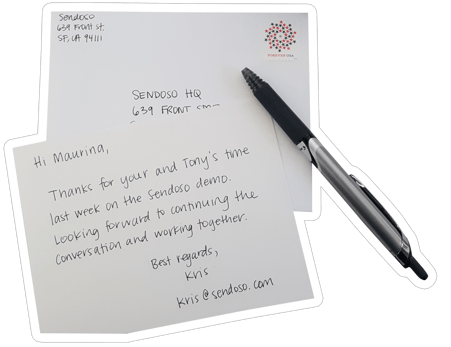 Sendoso
639 Front St.
SF, CA 94111
SENDOSO HQ
639 FRONT
Hi Maurina,
Thanks for your and Tony's time
last week on the Sendoso demo.
Looking forward to continuing the
conversation and working together.
Best regards,
Kris
kris@sendoso.com